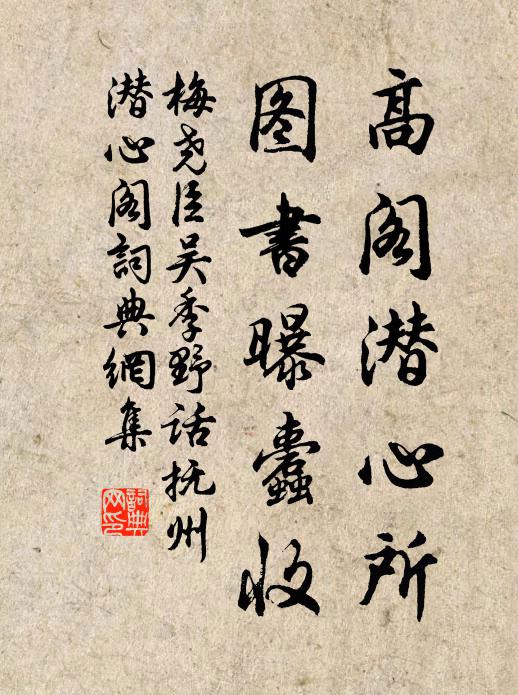 高阁潜心所
图書曝蠹收
梅尧臣吴季野话抚州
潜心阁詞典網集
詞典网印